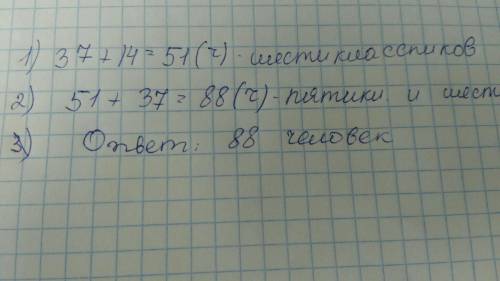 1) 37 + 14 = 51 (ч) - шестиклассников
2) 51 + 37 = 88 (ч) - пятикл и шест
3) Ответ: 88 человек